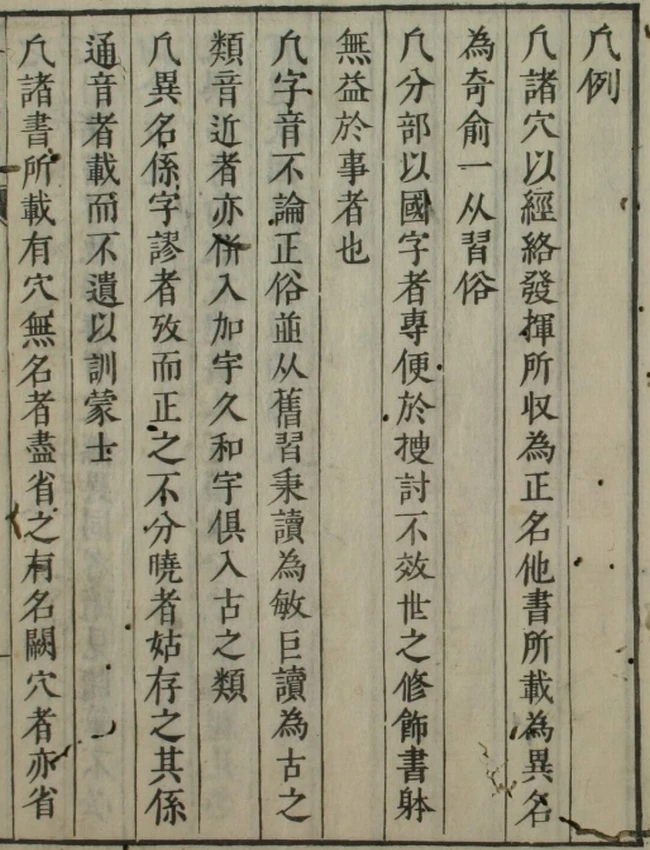 凡例
凡諸穴以經絡發揮所収為正名他書所載為異名
為奇俞一从習俗
凡分部以國字者專便於搜討不效世之修飾書躰
無益於事者也
凡字音不論正俗並从舊習秉讀為敏巨讀為古之
類音近者亦併入加宇久和宇俱入古之類
凡異名係字謬者攷而正之不分曉者姑存之其係
通音者載而不遺以訓蒙士
凡諸書所載有穴無名者盡省之有名闕穴者亦省